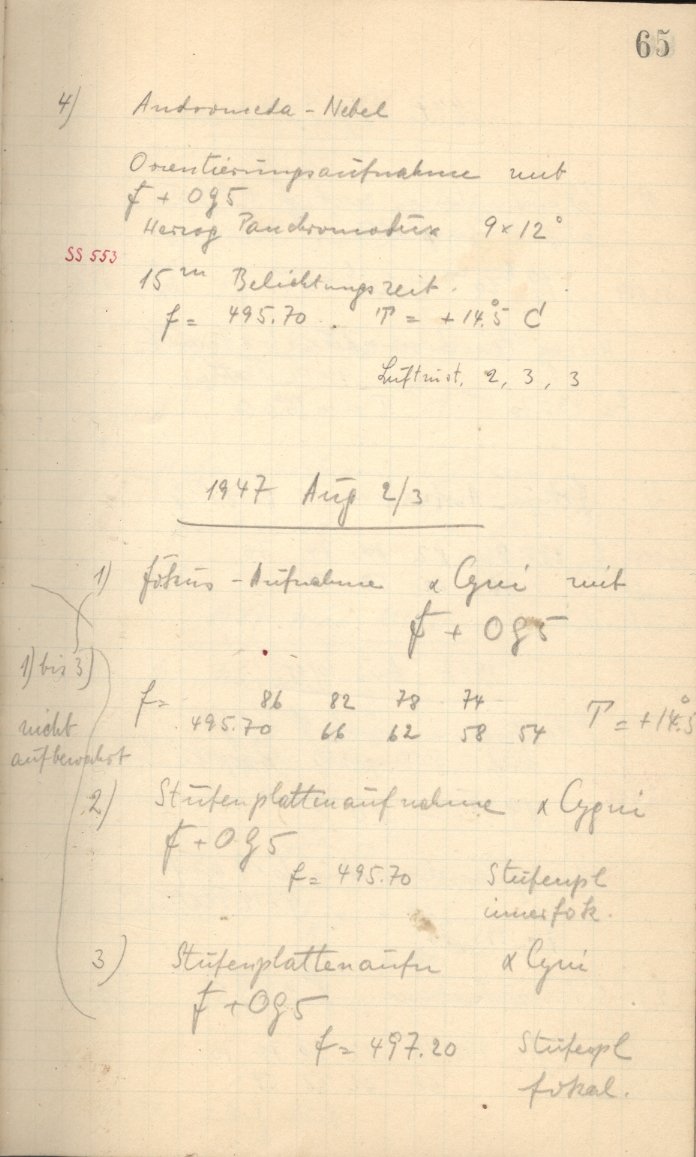 65
4) Andromeda-Nebel
Orientierungsaufnahme mit
F + Og5
Herzog 9x12°
SS 553
15 m Belichtungszeit.
f = 495.70 . T = +14.°5 C
Luftunr. 2, 3, 3
1947 Aug 2/3
1) Fokus-Aufnahme α Cygni mit
F + Og5
1) bis 3)
nicht
aufbewahrt
f = 86 82 78 74
495.70 66 62 58 54 T = +14.°5
2) Stufenplattenaufnahme α Cygni
F + Og5
f = 495.70 Stufenpl
innerfok.
3) Stufenplattenaufn α Cygni
F + Og5
f = 497.20 Stufenpl
fokal.